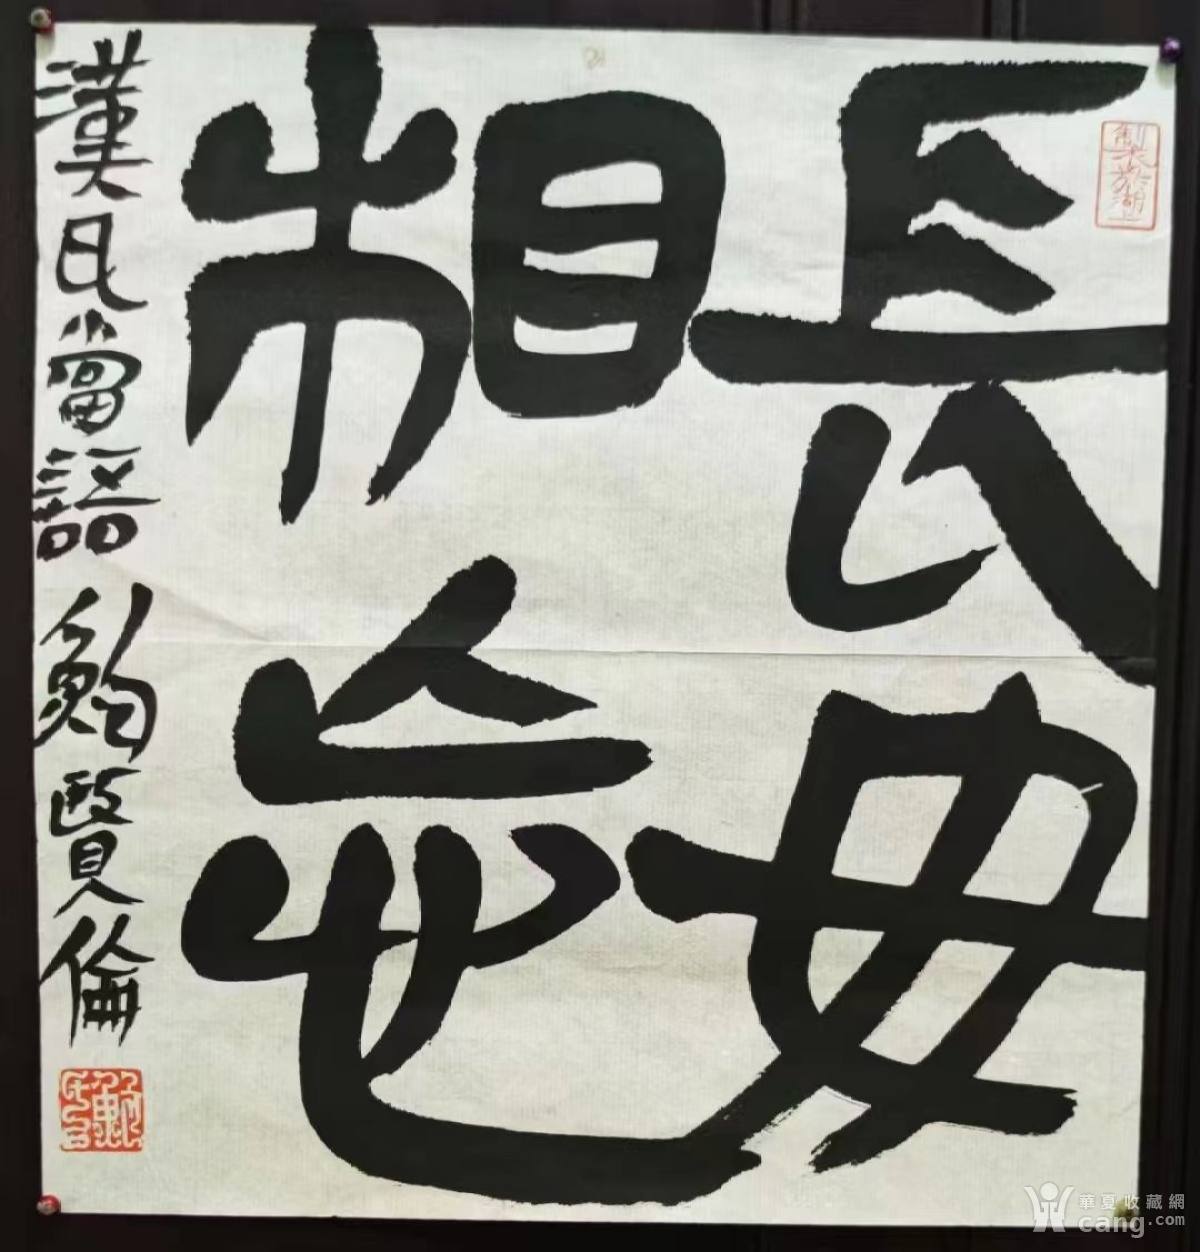 長毋
相忘
漢瓦當語 鮑賢倫
華夏收藏網
cang.com